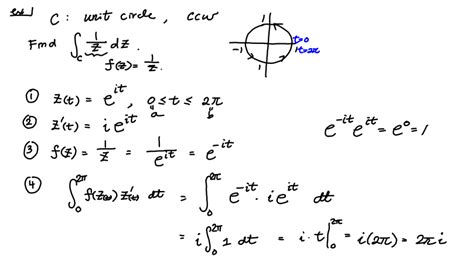 ex 1 C: unit circle, ccw
Find ∫_C 1/z dz.
f(z) = 1/z.
1
-1
1
t=0
t=2π
① z(t) = e^{it}, 0 ≤ t ≤ 2π
a b
② z'(t) = i e^{it}
③ f(z) = 1/z = 1/e^{it} = e^{-it}
e^{-it} e^{it} = e^0 = 1
④ ∫_0^{2π} f(z(t)) z'(t) dt = ∫_0^{2π} e^{-it} · i e^{it} dt
= i ∫_0^{2π} 1 dt = i · t |_0^{2π} = i(2π) = 2πi